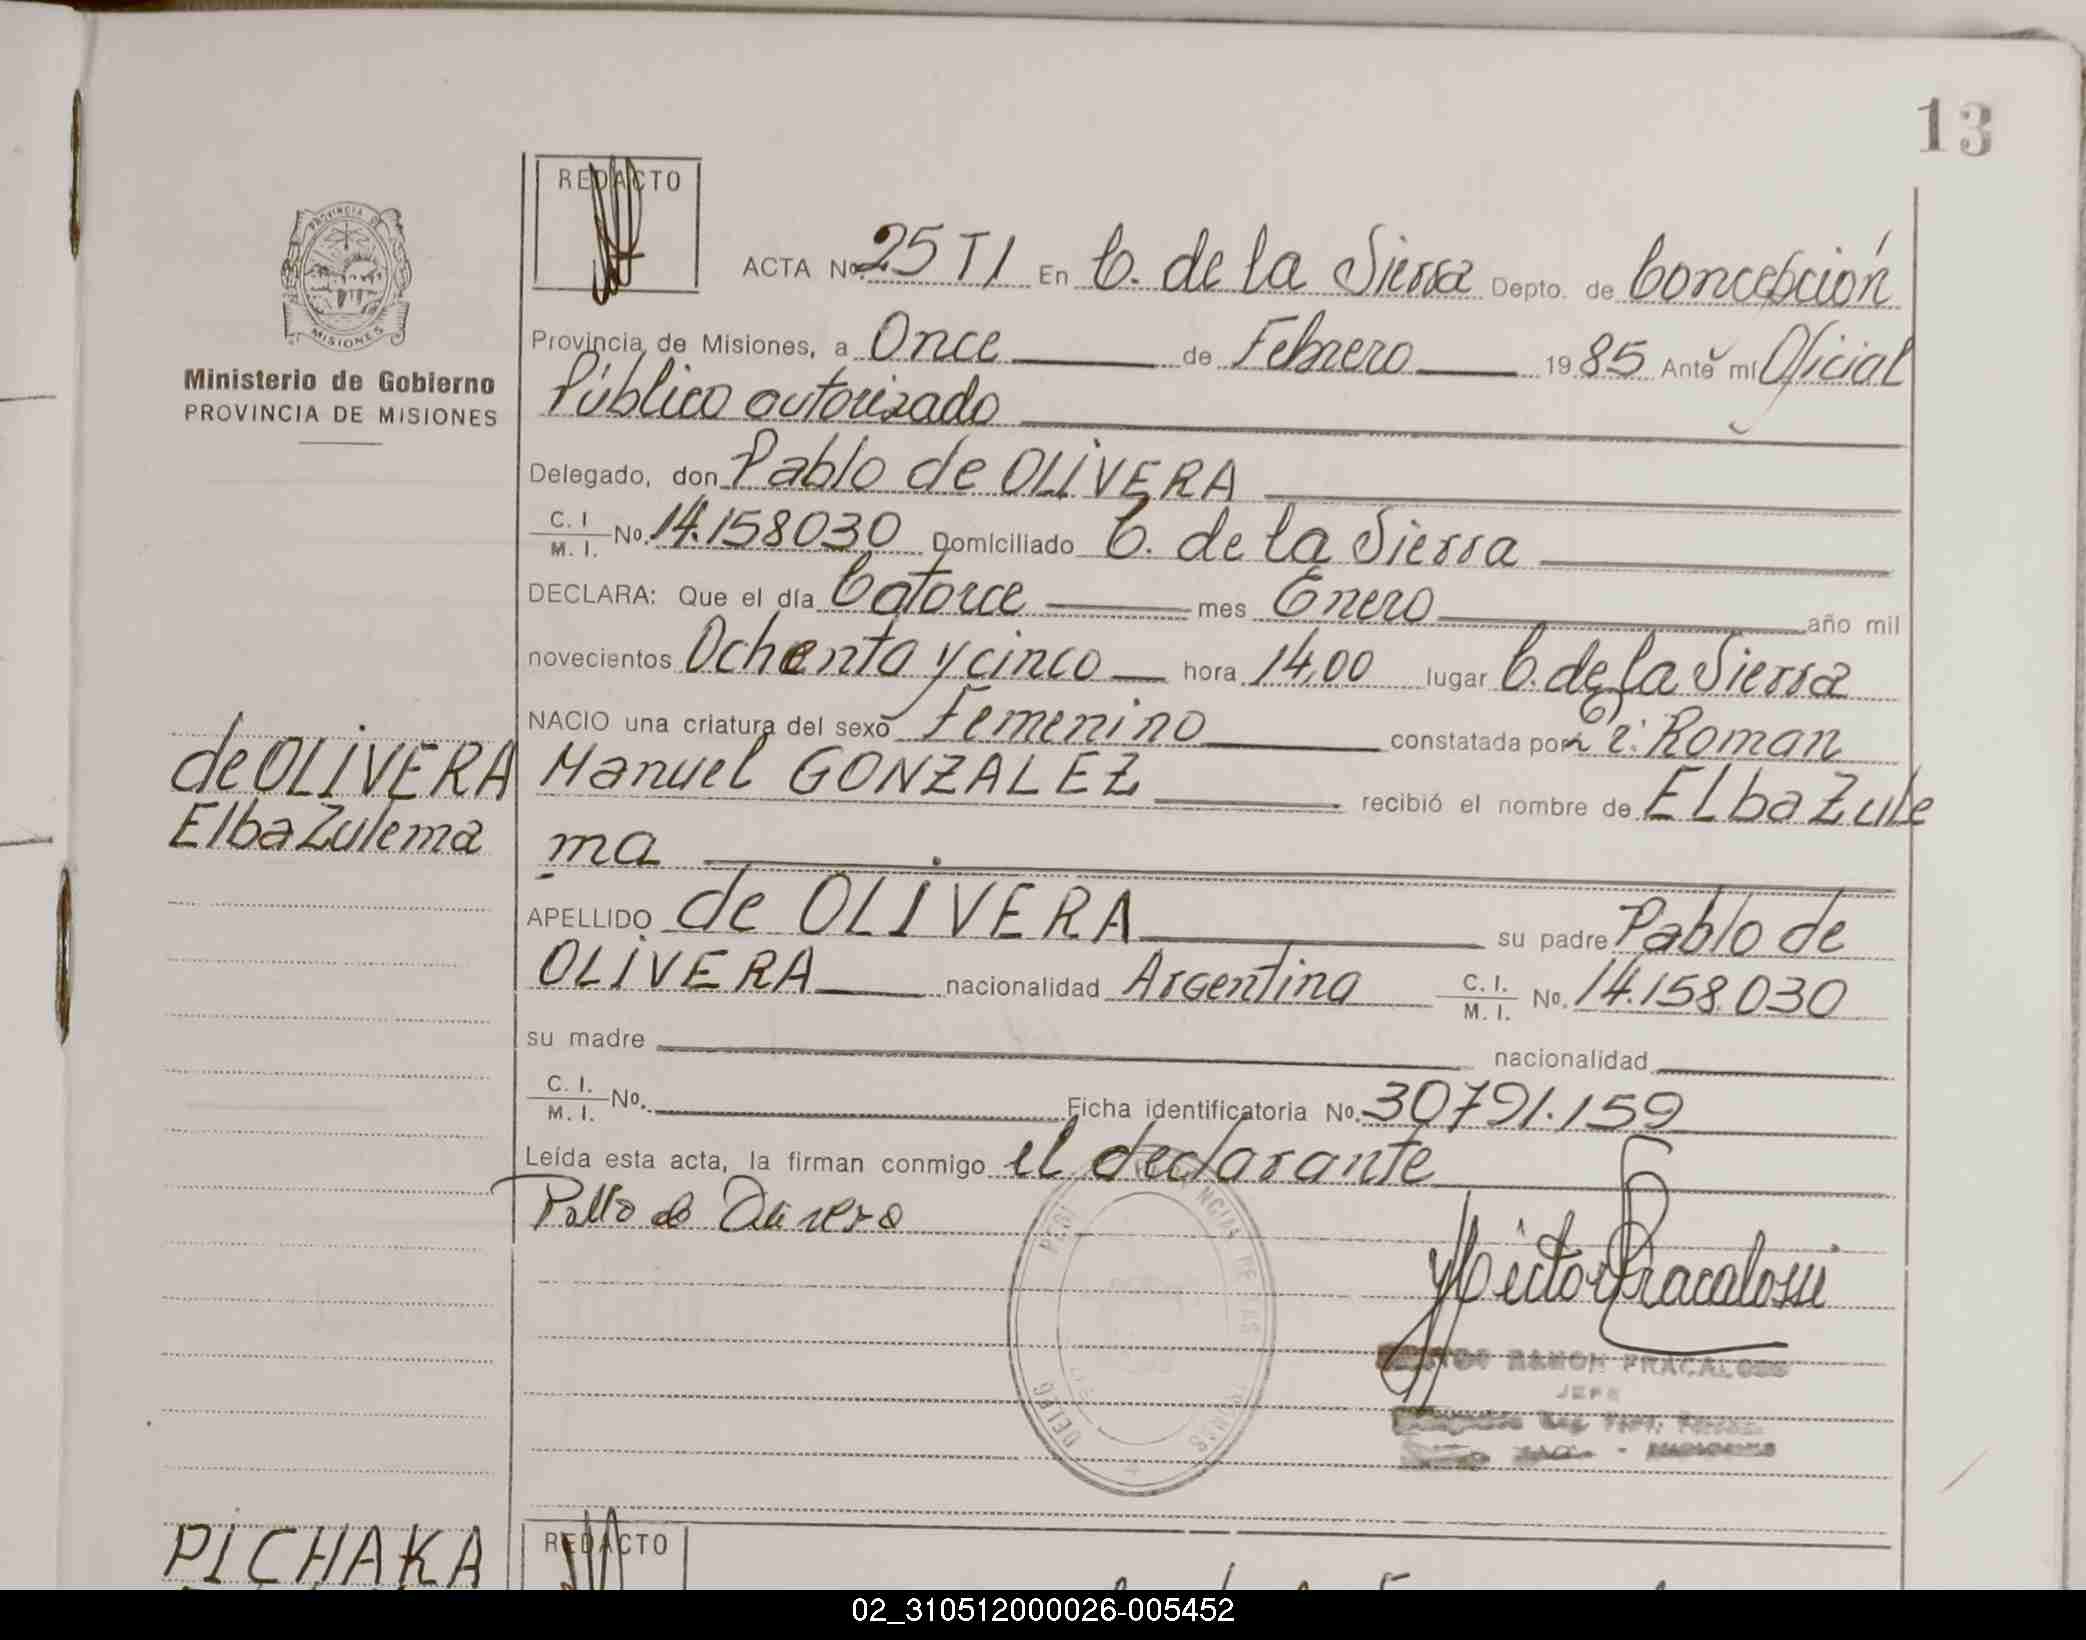 13
REDACTO
ACTA No. 25 T I En C. de la Sierra Depto. de Concepción
PROVINCIA DE
MISIONES
Ministerio de Gobierno
PROVINCIA DE MISIONES
Provincia de Misiones, a Once de Febrero 1985 Ante mí Oficial
Público autorizado
Delegado, don Pablo de OLIVERA
C. I. M. I. No. 14.158030 Domiciliado C. de la Sierra
DECLARA: Que el día Catorce mes Enero año mil
novecientos Ochenta y cinco hora 14,00 lugar C. de la Sierra
NACIO una criatura del sexo Femenino constatada por Roman
de OLIVERA
Elba Zulema
Manuel GONZALEZ recibió el nombre de Elba Zule
ma
APELLIDO de OLIVERA su padre Pablo de
OLIVERA nacionalidad Argentina C. I. M. I. No. 14.158.030
su madre nacionalidad
C. I. M. I. No. Ficha identificatoria No. 30791.159
Leída esta acta, la firman conmigo el declarante
Pablo de
Hector Fracalossi
RAMON FRACALOSSI
JEFE
PICHAKA
REDACTO
02_310512000026-005452